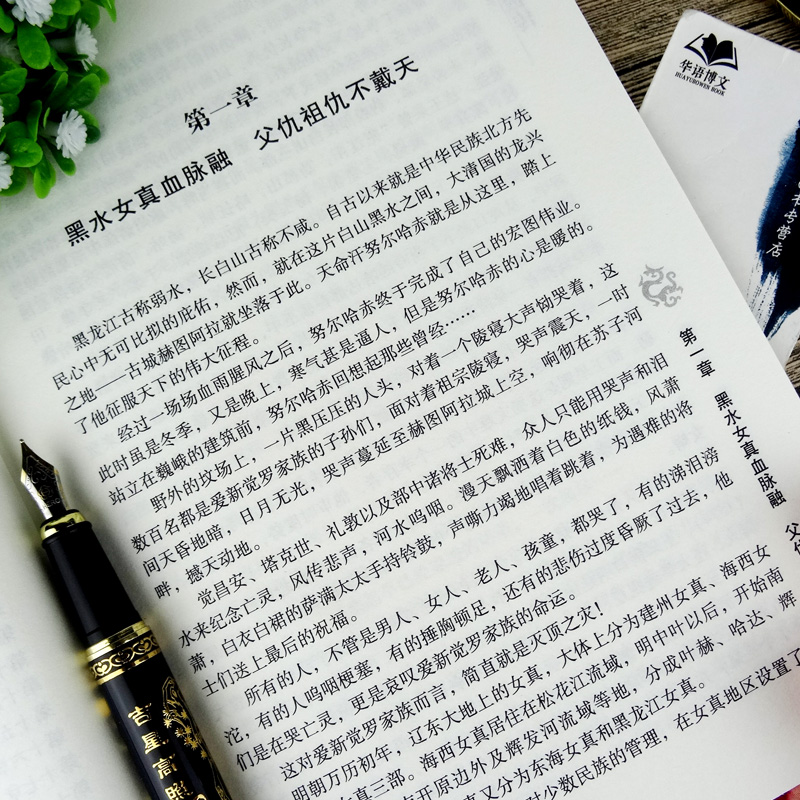 第一章
黑水女真血脉融 父仇祖仇不戴天
黑龙江古称弱水，长白山古称不咸。自古以来就是中华民族北方先
民心中无可比拟的庇佑，然而，就在这片白山黑水之间，大清国的龙兴
之地——古城赫图阿拉就坐落于此。天命汗努尔哈赤就是从这里，踏上
了他征服天下的伟大征程。
经过一场场血雨腥风之后，努尔哈赤终于完成了自己的宏图伟业。
此时虽是冬季，又是晚上，寒气甚是逼人，但是努尔哈赤的心是暖的。
站立在巍峨的建筑前，努尔哈赤回想起那些曾经……
野外的坟场上，一片黑压压的人头，对着一个陵寝大声恸哭着，这
数百名都是爱新觉罗家族的子孙们，面对着祖宗陵寝，哭声震天，一时
间天昏地暗，日月无光，哭声蔓延至赫图阿拉城上空，响彻在苏子河
畔，撼天动地。
觉昌安、塔克世、礼敦以及部中诸将士死难，众人只能用哭声和泪
水来纪念亡灵，风传悲声，河水呜咽。漫天飘洒着白色的纸钱，风萧
萧，白衣白裙的萨满太太手持铃鼓，声嘶力竭地唱着跳着，为遇难的将
士们送上最后的祝福。
所有的人，不管是男人、女人、老人、孩童，都哭了，有的涕泪滂
沱，有的人呜咽哽塞，有的捶胸顿足，还有的悲伤过度昏厥了过去，他
们是在哭亡灵，更是哀叹爱新觉罗家族的命运。
这对爱新觉罗家族而言，简直就是灭顶之灾！
明朝万历初年，辽东大地上的女真，大体上分为建州女真、海西女
真三部。海西女真居住在松花江流域，明中叶以后，开始南
开原边外及辉发河流域等地，分成叶赫、哈达、辉
又分为东海女真和黑龙江女真。
对少数民族的管理，在女真地区设置了
第一章 黑水女真血脉融 父仇
华语博文
HUAYUBOWEN BOOK
书专营店
吉星高照